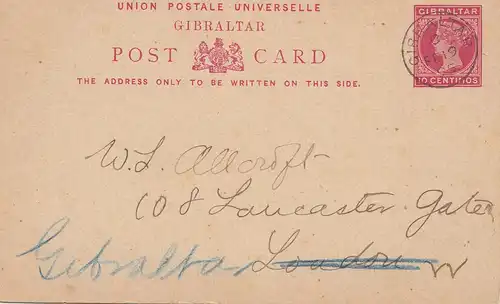 UNION POSTALE UNIVERSELLE
GIBRALTAR
POST CARD
THE ADDRESS ONLY TO BE WRITTEN ON THIS SIDE.
GIBRALTAR
10 CENTIMOS
GIBRALTAR
W. L. Allcroft
108 Lancaster Gate
Gibraltar London W